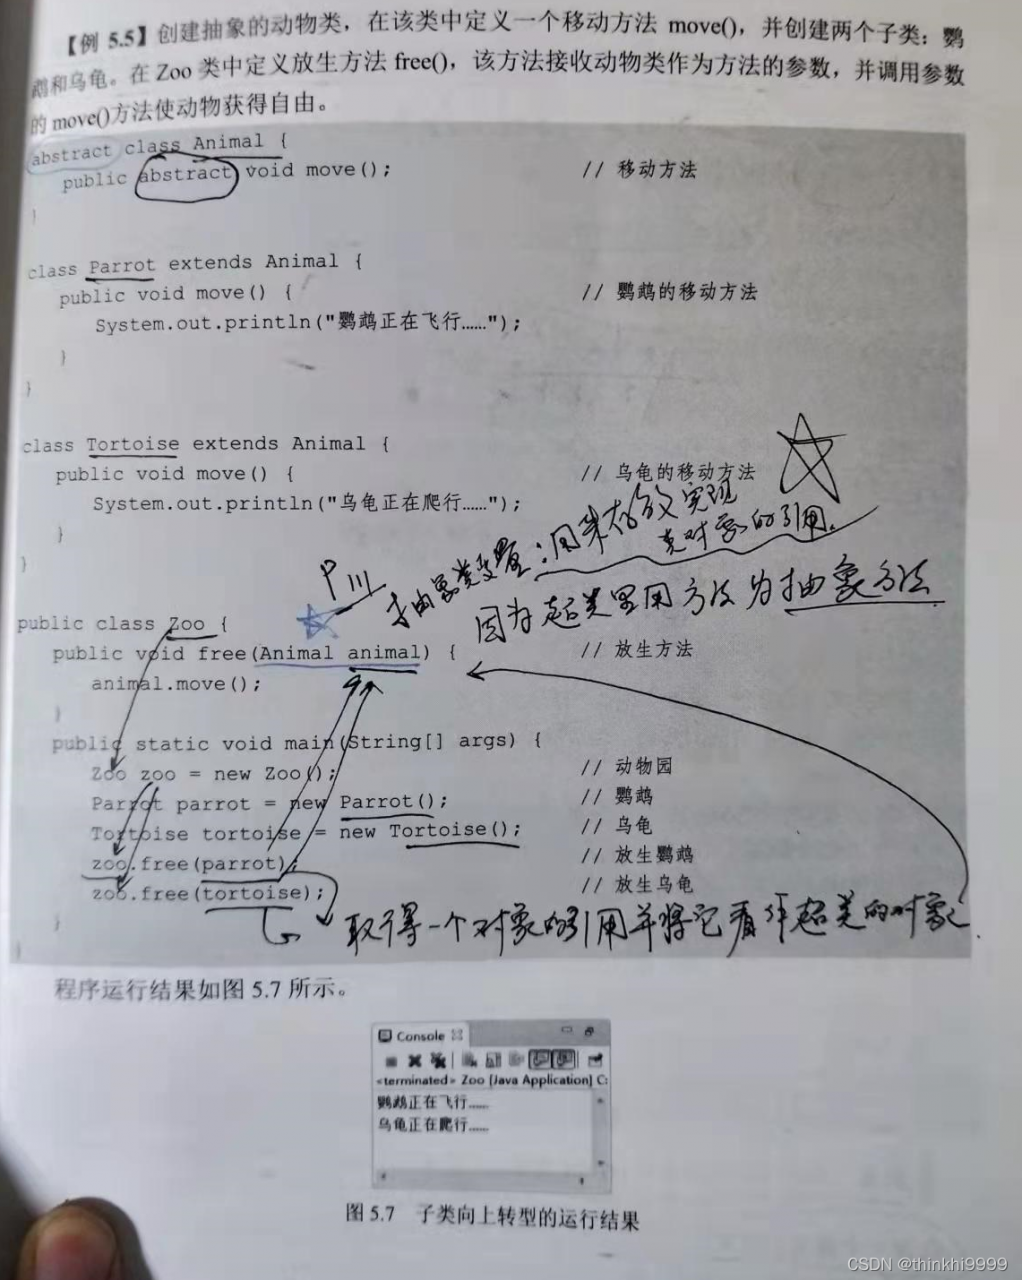 【例 5.5】创建抽象的动物类，在该类中定义一个移动方法 move()，并创建两个子类：鹦
鹉和乌龟。在 Zoo 类中定义放生方法 free()，该方法接收动物类作为方法的参数，并调用参数
的 move()方法使动物获得自由。
abstract class Animal {
public abstract void move(); // 移动方法
}
class Parrot extends Animal {
public void move() { // 鹦鹉的移动方法
System.out.println("鹦鹉正在飞行……");
}
}
class Tortoise extends Animal {
public void move() { // 乌龟的移动方法
System.out.println("乌龟正在爬行……");
}
}
抽象类变量：用来存放实现
类对象的引用.
因为超类里用方法为抽象方法
public class Zoo {
public void free(Animal animal) { // 放生方法
animal.move();
}
public static void main(String[] args) {
Zoo zoo = new Zoo(); // 动物园
Parrot parrot = new Parrot(); // 鹦鹉
Tortoise tortoise = new Tortoise(); // 乌龟
zoo.free(parrot); // 放生鹦鹉
zoo.free(tortoise); // 放生乌龟
取得一个对象的引用并将它看作超类的对象.
}
}
程序运行结果如图 5.7 所示。
Console
<terminated> Zoo [Java Application] C:
鹦鹉正在飞行……
乌龟正在爬行……
图 5.7 子类向上转型的运行结果
CSDN @thinkhi9999